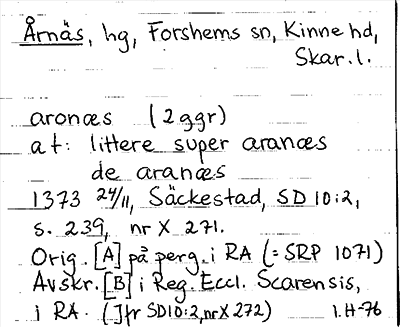 Årnäs, hg, Forshems sn, Kinne hd,
Skar. l.
aronæs (2 ggr)
at: littere super aranæs
de aranæs
1373 24/11, Säckestad, SD 10:2,
s. 239, nr X 271.
Orig. [A] på perg. i RA (= SRP 1071)
Avskr. [B] i Reg. Eccl. Scarensis,
i RA. (Jfr SD10:2, nr X 272) I.H-76